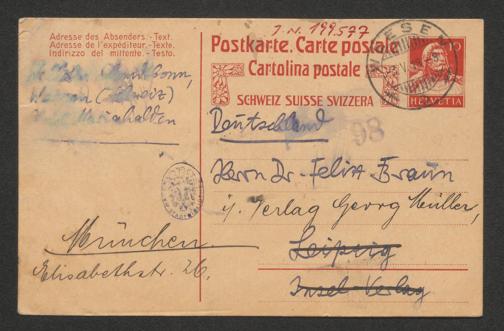 J. N. 199.577
Adresse des Absenders.-Text.
Adresse de l'expéditeur.-Texte.
Indirizzo del mittente.-Testo.
Postkarte. Carte postale
Cartolina postale
SCHWEIZ SUISSE SVIZZERA
WIESEN
10
HELVETIA
Deutschland
98
Herrn Dr. Felix Braun
Verlag Georg Müller,
Leipzig
Insel-Verlag
München
Elisabethstr. 26.